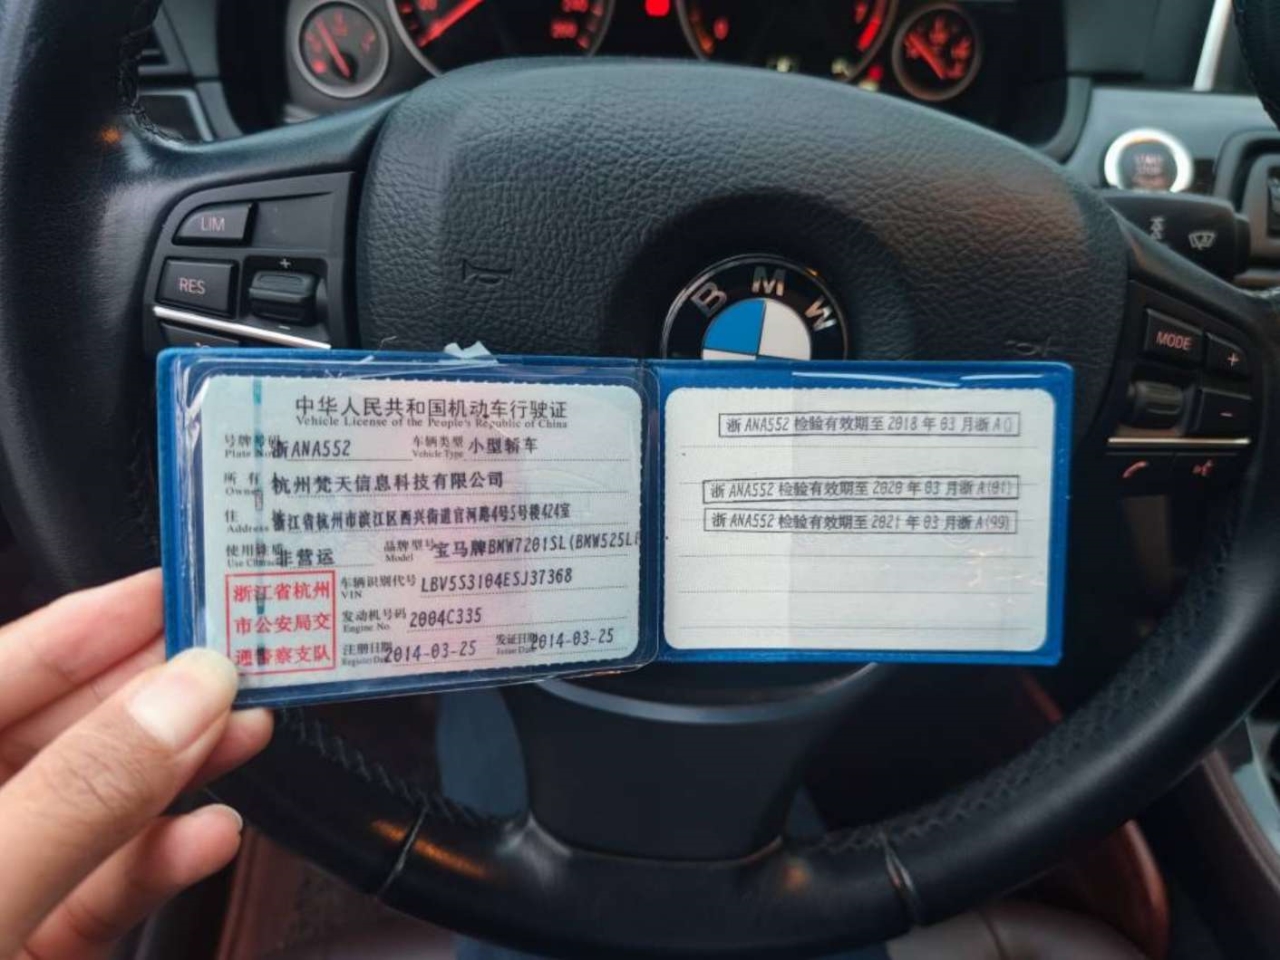 LIM
RES
+
−
START
STOP
MODE
+
−
BMW
中华人民共和国机动车行驶证
Vehicle License of the People's Republic of China
号牌号码 浙ANA552 车辆类型 小型轿车
Plate No. Vehicle Type
所有 杭州梵天信息科技有限公司
Owner
住 浙江省杭州市滨江区西兴街道官河路4号5号楼424室
Address
使用性质 非营运 品牌型号 宝马牌BMW7201SL(BMW525L
Use Character Model
浙江省杭州
市公安局交
通警察支队
车辆识别代号 LBV5S3104ESJ37368
VIN
发动机号码 2004C335
Engine No.
注册日期 2014-03-25 发证日期 2014-03-25
Register Date Issue Date
浙 ANA552 检验有效期至 2018 年 03 月浙 A()
浙 ANA552 检验有效期至 2020 年 03 月浙 A(01)
浙 ANA552 检验有效期至 2021 年 03 月浙 A(99)